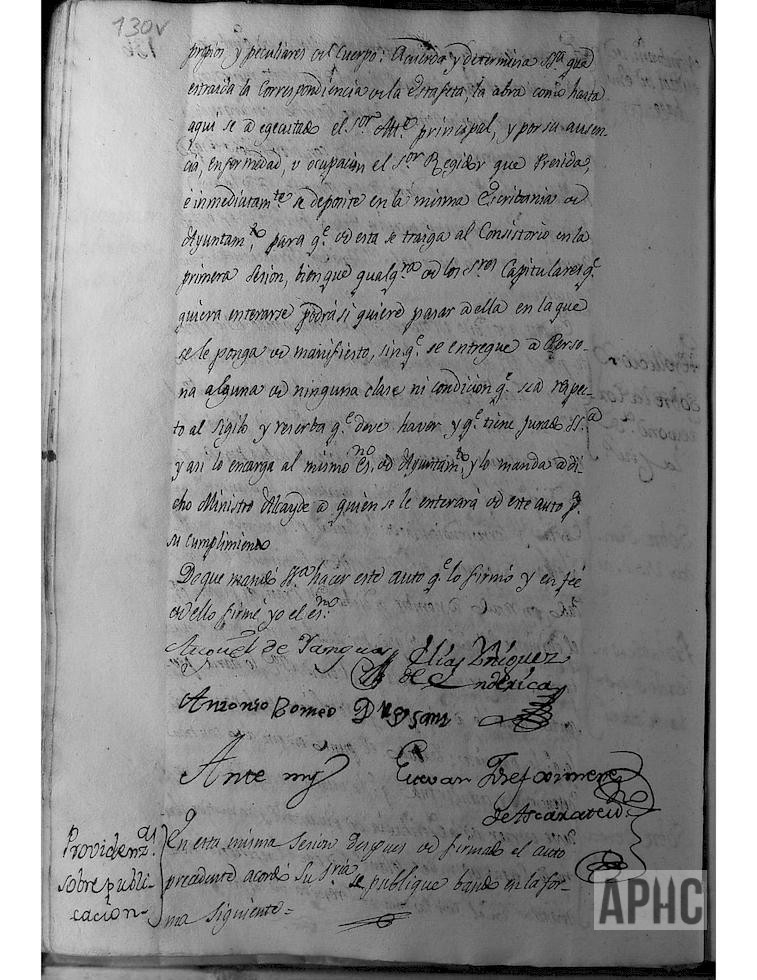 130v
propios y peculiares del Cuerpo: Acuerda y determina SSª. que
extraida la Correspondiencia de la Estafeta, la abra como hasta
aqui se a egecutado el Sor. Alle. principal, y por su ausen-
cia, enfermedad, u ocupacion el Sor Regidor que Presida,
e inmediatamte se deposite en la misma Escribania de
Ayuntamto. para qe. de esta se traiga al Consistorio en la
primera sesion, bien que qualqra de los Sres Capitulares qe.
quiera enterarse podrá si quiere pasar a ella en la que
se le ponga de manifiesto, sin qe. se entregue a Perso-
na alguna de ninguna clase ni condicion qe. sea respec-
to al sigilo y reserba qe. deve haver y qe. tiene Jurado SSª
y asi lo encarga al mismo Esno. de Ayuntamto. y lo manda a di-
cho Ministro Alcayde a quien se le enterará de este auto pª.
su cumplimiento
De que mandó SSª. hacer este auto qe lo firmó y en fee
de ello firmé yo el esno.
Miguel de Yanguas Elias Yñiguez
de Enderica
Antonio Romeo
Ante my Estevan Josef Ximenez
de Ascarate
Providenzª.
sobre publi-
cacion
En esta misma Sesion despues de firmado el auto
precedente acordó Su Sria se publique bando en la for-
ma siguiente=
APHC